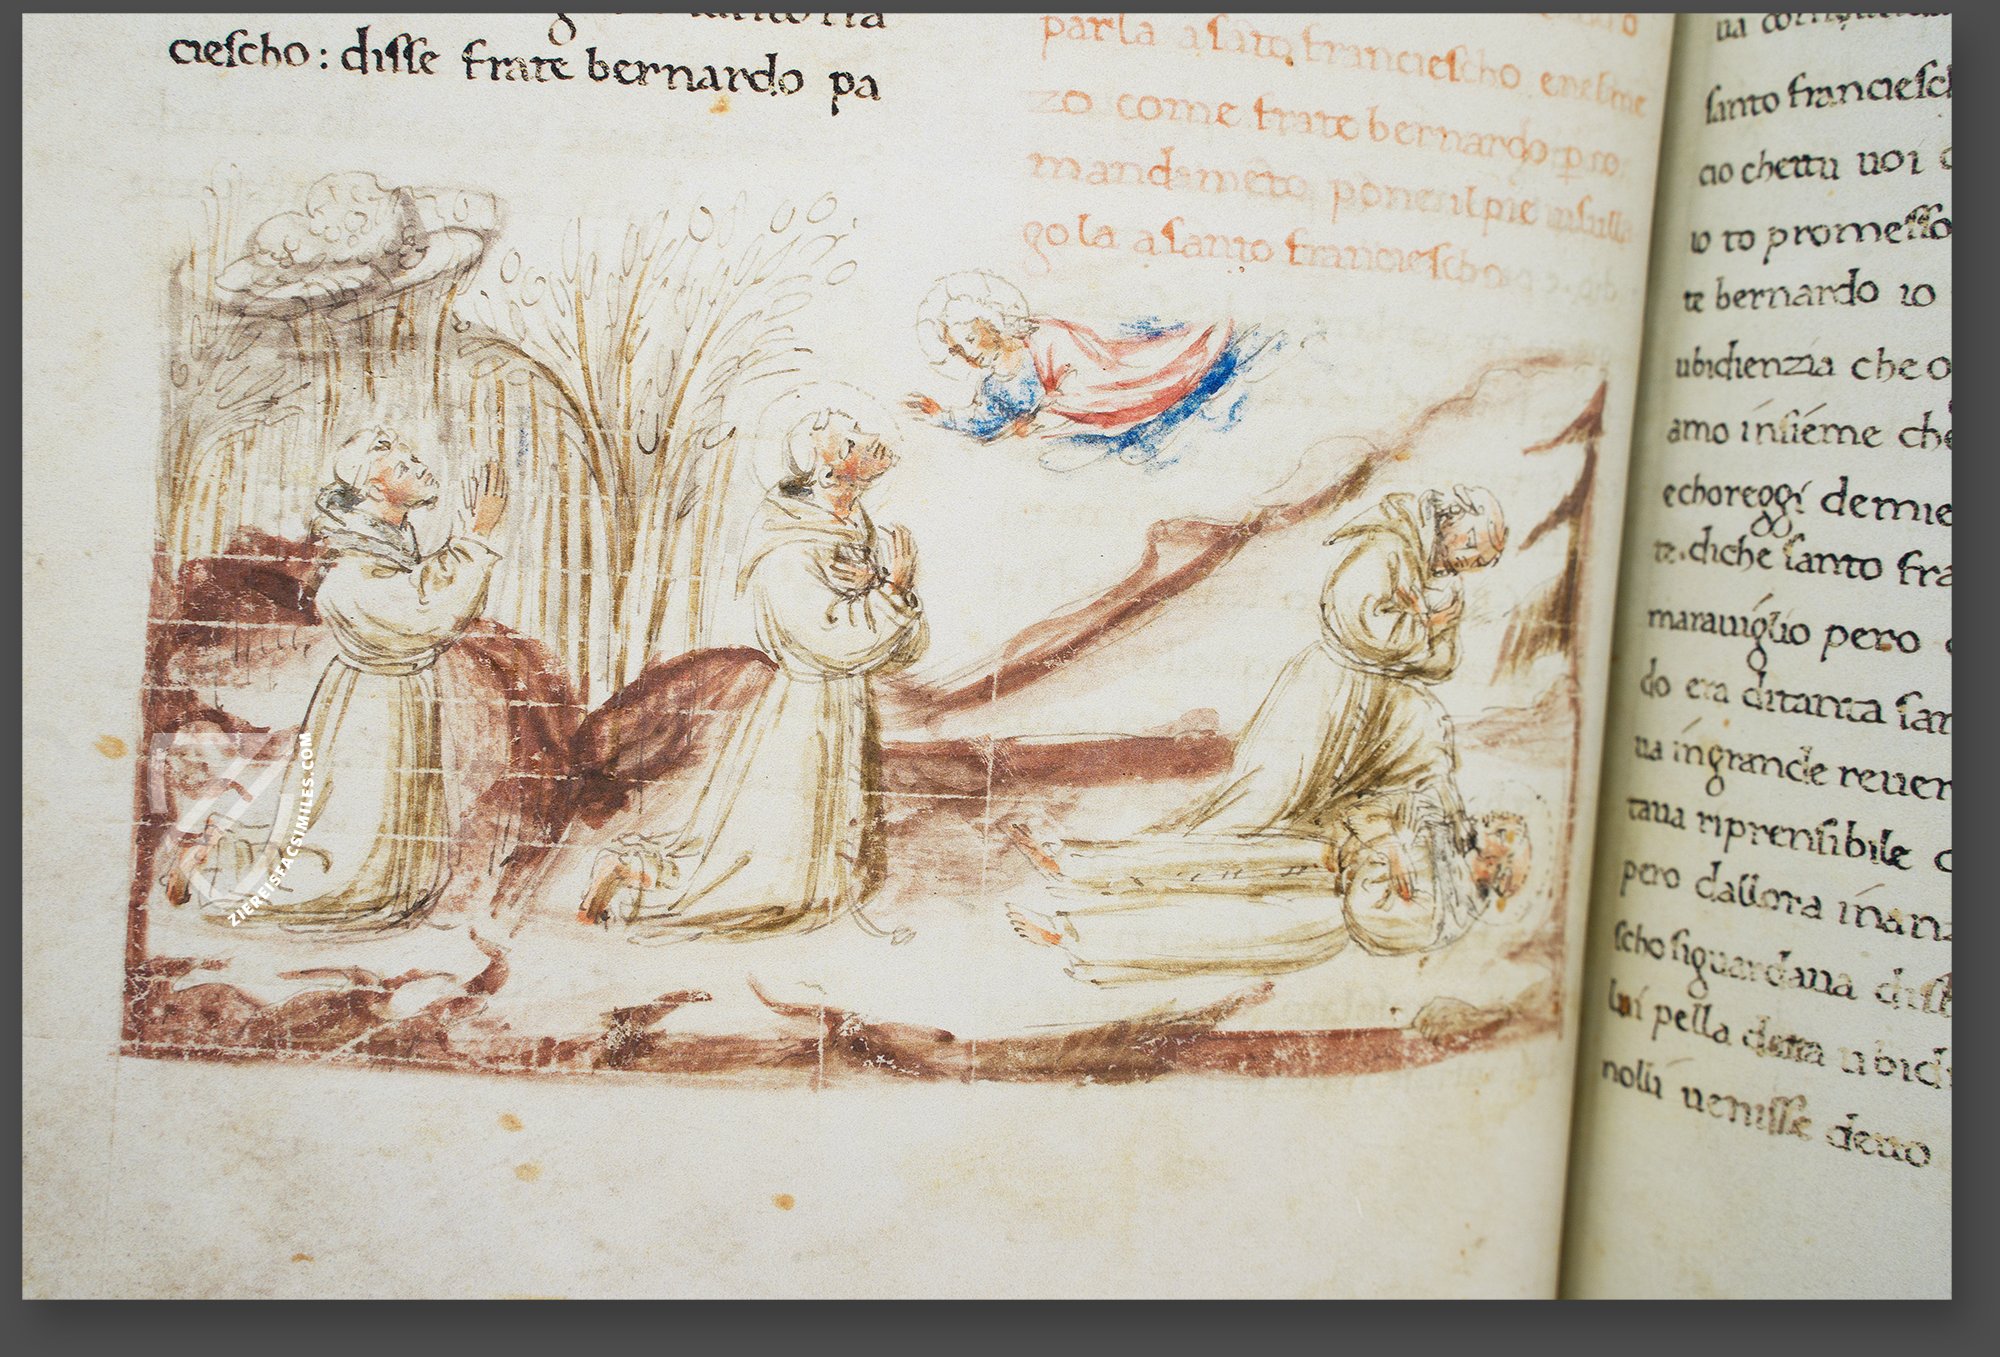 ciescho: disse frate bernardo pa
parla a santo franciescho
zo come frate bernardo p co
mandameto pone il pie insulla
gola a santo franciescho
santo franciesch
cio chettu uoi
io to promesso
te bernardo io
ubidienzia che o
amo insieme che
echoreggi demie
te. diche santo fra
marauiglio pero
do era ditanta san
ua ingrande reuer
taua riprensibile
pero dallora inanz
scho siguardaua
lui pella detta ubid
nolli uenisse detto
ZIEREISFACSIMILES.COM